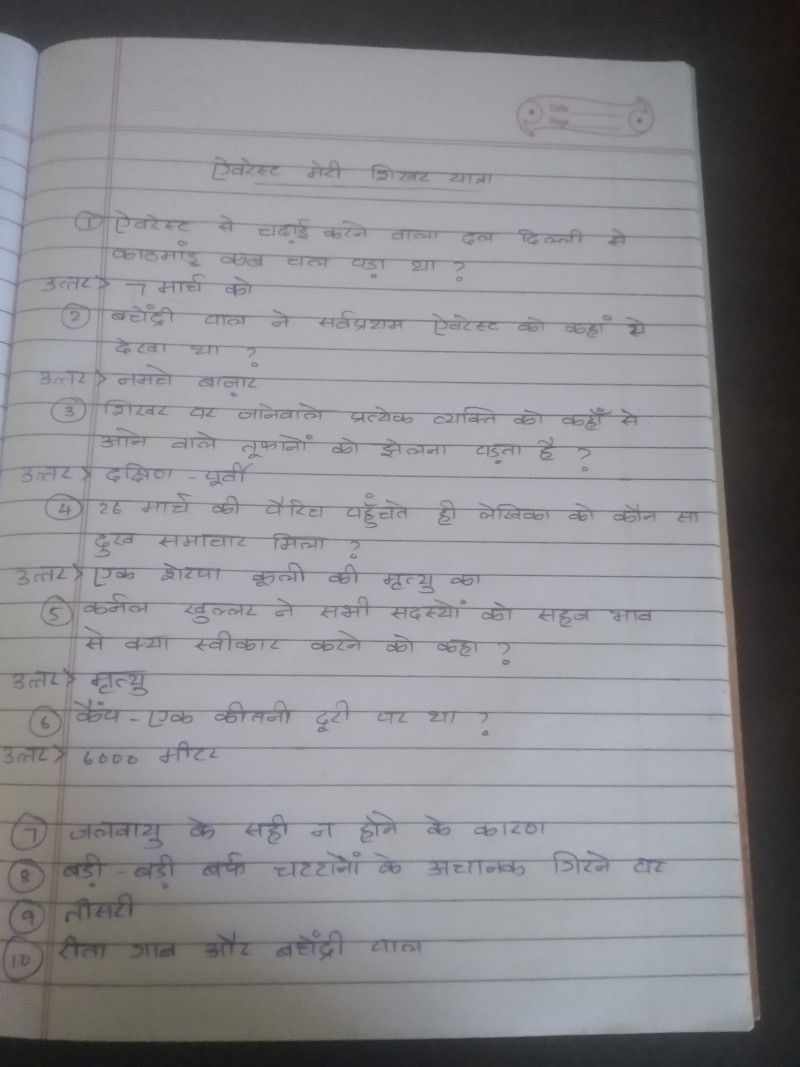 Date
Page
ऐवरेस्ट मेरी शिखर यात्रा
① ऐवरेस्ट से चढ़ाई करने वाला दल दिल्ली से
काठमांडू कब चल पड़ा था ?
उत्तर> 7 मार्च को
② बचेंद्री पाल ने सर्वप्रथम ऐवरेस्ट को कहां से
देखा था ?
उत्तर> नमचे बाज़ार
③ शिखर पर जानेवाले प्रत्येक व्यक्ति को कहाँ से
आने वाले तूफानों को झेलना पड़ता है ?
उत्तर> दक्षिण - पूर्वी
④ 26 मार्च की पैरिच पहुँचते ही लेखिका को कौन सा
दुख समाचार मिला ?
उत्तर> एक शेरपा कूली की मृत्यु का
⑤ कर्नल खुल्लर ने सभी सदस्यों को सहज भाव
से क्या स्वीकार करने को कहा ?
उत्तर> मृत्यु
⑥ कैंप - एक कीतनी दूरी पर था ?
उत्तर> 6000 मीटर
⑦ जलवायु के सही न होने के कारण
⑧ बड़ी - बड़ी बर्फ चट्टानों के अचानक गिरने पर
⑨ तीसरी
⑩ रीता गाब और बचेंद्री पाल